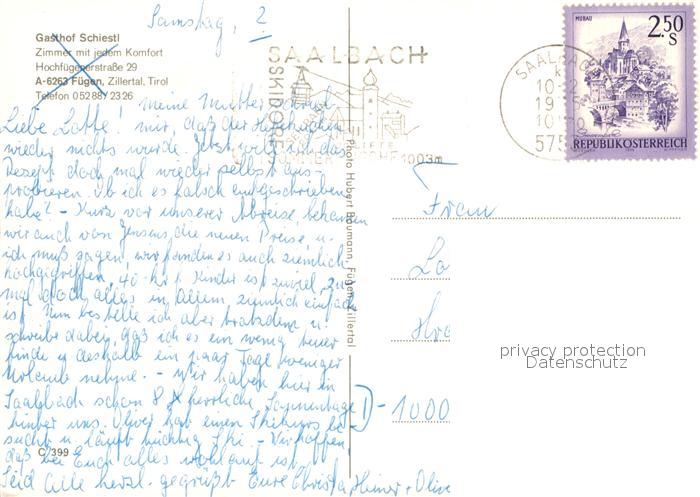 Samstag, 2
Gasthof Schiestl
Zimmer mit jedem Komfort
Hochfügenerstraße 29
A-6263 Fügen, Zillertal, Tirol
Telefon 0 52 88 / 23 26
SAALBACH
SKIDORF
1003m
SAALBACH
10.-2.
575
MURAU
2.50
S
REPUBLIK ÖSTERREICH
meine Mutter schrieb
Liebe Lotte! mir, daß der
wieder nichts wurde. Jetzt will ich das
Rezept doch mal wieder selbst aus-
probieren. Ob ich es falsch aufgeschrieben
habe? - Kurz vor unserer Abreise bekamen
wir auch von Jensens die neuen Preise u.
ich muß sagen, wir fanden es auch ziemlich
hochgegriffen, 40.- f. Kinder ist zuviel, zu-
mal doch alles in allem ziemlich einfach
ist. Nun bestelle ich aber trotzdem u.
schreibe dabei, daß ich es ein wenig teuer
finde u. deshalb ein paar Tage weniger
Urlaub nehme. - Wir haben hier in
Saalbach schon 8 herrliche Sonnentage
hinter uns. Oliver hat einen Skikurs be-
sucht u. läuft tüchtig Ski. - Wir hoffen,
daß bei Euch alles wohlauf ist.
Seid alle herzl. gegrüßt Eure Christa, Heiner + Olive
C/399
Photo Hubert Baumann, Fügen-Zillertal
Frau
Lo
D - 1000
privacy protection
Datenschutz